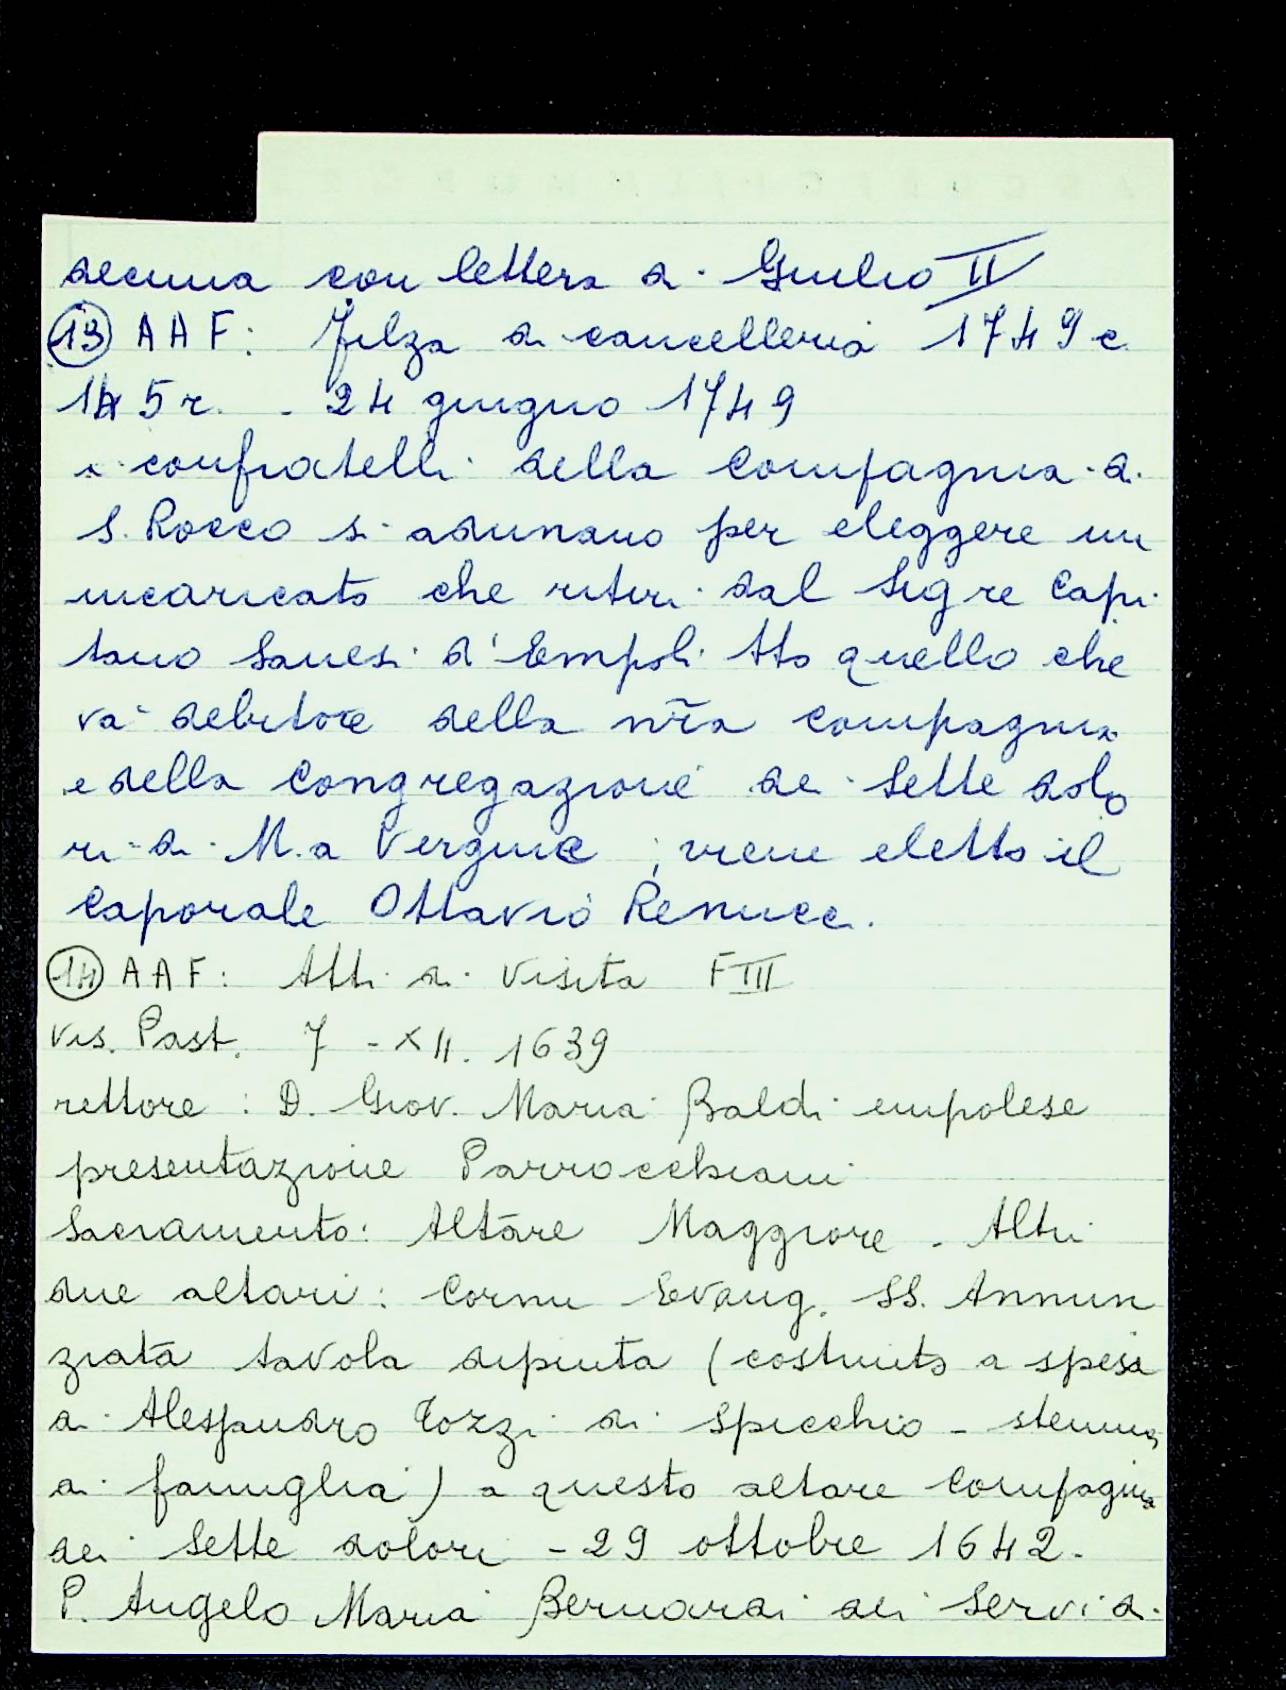 decima con lettera di Giulio II
13 AAF: Filza di cancelleria 1749 c.
145 r. - 24 giugno 1749
i confratelli della Compagnia di
S. Rocco si adunano per eleggere un
incaricato che ritiri dal Sigre Capi
tano Sanesi d'Empoli tto quello che
va debitore della nr̃a compagnia
e della Congregazione dei Sette dolo
ri di M.a Vergine ; viene eletto il
Caporale Ottavio Renucci.
14 AAF: Atti di Visita F III
Vis. Past. 7 - XII. 1639
rettore : D. Giov. Maria Baldi empolese
presentazione Parrocchiani
Sacramento: Altare Maggiore - Altri
due altari: Cornu Evang. SS. Annun
ziata tavola dipinta (costruito a spese
di Alessandro Tozzi di Spicchio - stemma
di famiglia) a questo altare Compagnia
dei Sette dolori - 29 ottobre 1642.
P. Angelo Maria Bernardi dei Servi di